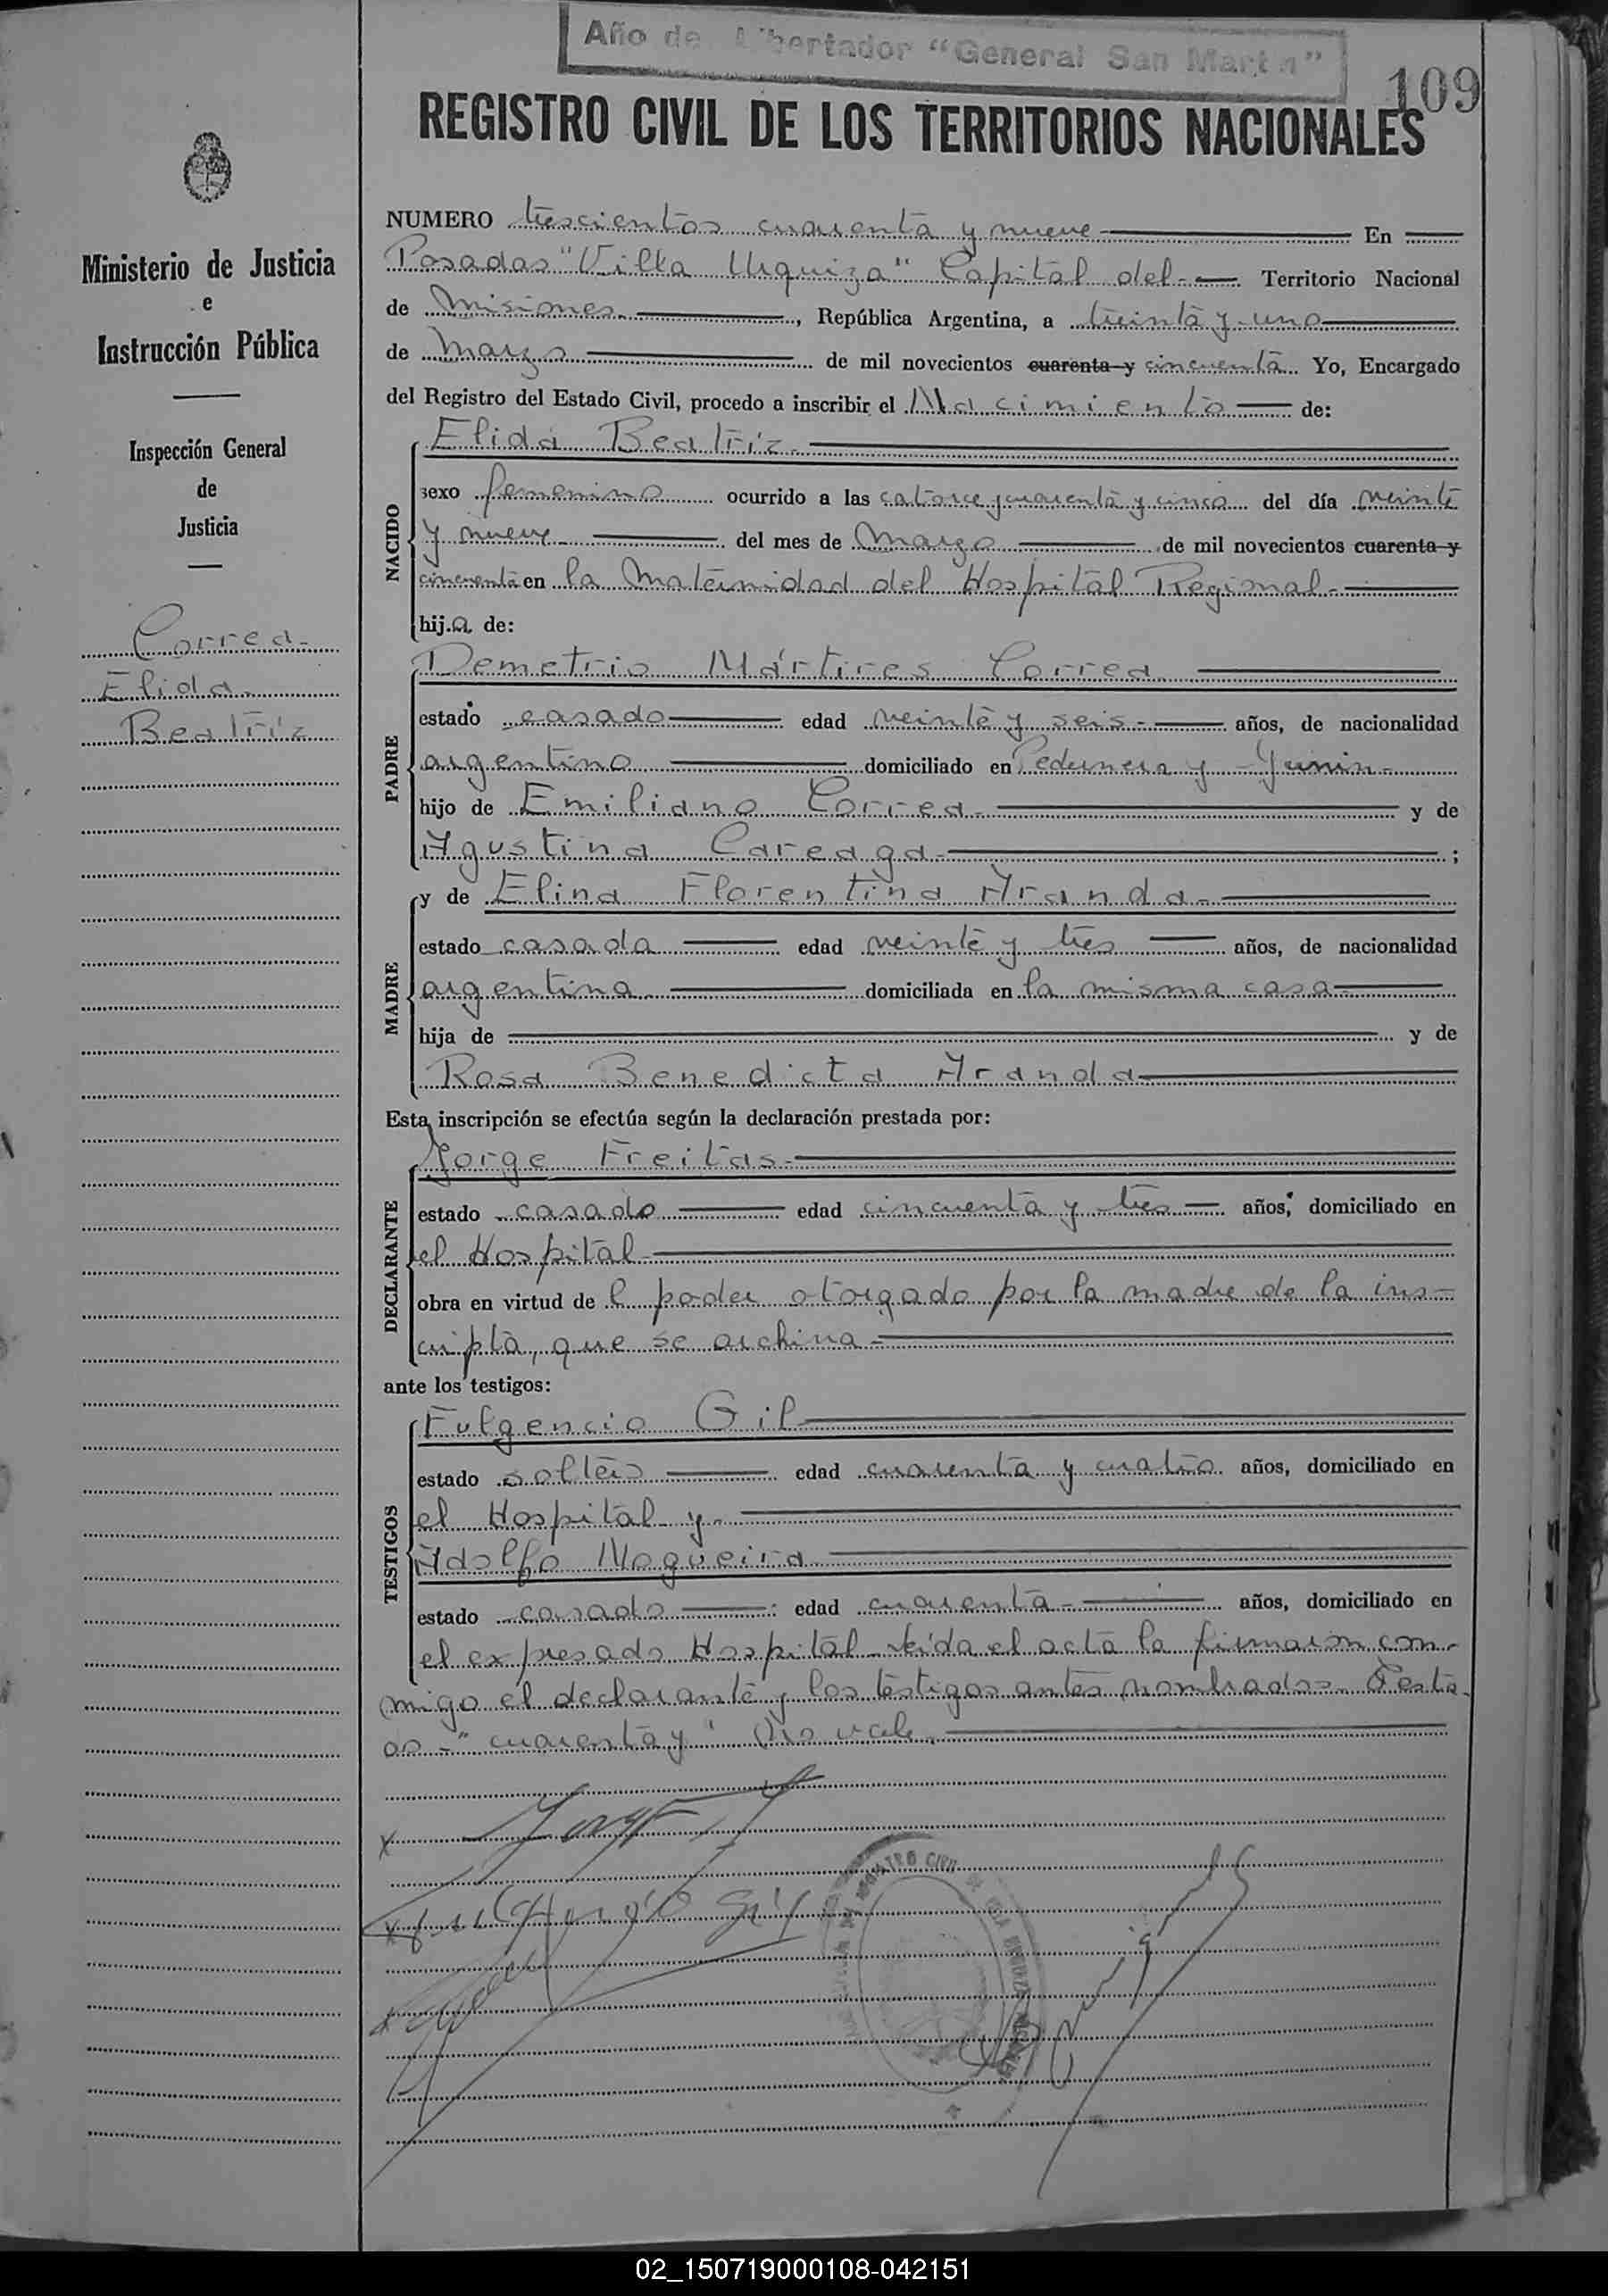 Año del Libertador "General San Martin"
109
REGISTRO CIVIL DE LOS TERRITORIOS NACIONALES
Ministerio de Justicia
e
Instrucción Pública
Inspección General
de
Justicia
Correa
Elida
Beatriz
NUMERO trescientos cuarenta y nueve En
Posadas "Villa Urquiza" Capital del Territorio Nacional
de Misiones, República Argentina, a treinta y uno
de Marzo de mil novecientos cuarenta y cincuenta Yo, Encargado
del Registro del Estado Civil, procedo a inscribir el Nacimiento de:
Elida Beatriz
NACIDO
sexo femenino ocurrido a las catorce y cuarenta y cinco del día veinte
y nueve del mes de Marzo de mil novecientos cuarenta y
cincuenta en la Maternidad del Hospital Regional
hija de:
Demetrio Mártires Correa
PADRE
estado casado edad veinte y seis años, de nacionalidad
argentino domiciliado en Pedernera y Junin
hijo de Emiliano Correa y de
Agustina Careaga;
y de Elina Florentina Aranda
MADRE
estado casada edad veinte y tres años, de nacionalidad
argentina domiciliada en la misma casa
hija de y de
Rosa Benedicta Aranda
Esta inscripción se efectúa según la declaración prestada por:
Jorge Freitas
DECLARANTE
estado casado edad cincuenta y tres años, domiciliado en
el Hospital
obra en virtud de l poder otorgado por la madre de la ins-
cripta, que se archiva
ante los testigos:
Fulgencio Gil
TESTIGOS
estado soltero edad cuarenta y cuatro años, domiciliado en
el Hospital y
Adolfo Nogueira
estado casado edad cuarenta años, domiciliado en
el expresado Hospital leída el acta la firmaron con-
migo el declarante y los testigos antes nombrados. Testa-
do - "cuarenta y" No vale.
REGISTRO CIVIL
02_150719000108-042151